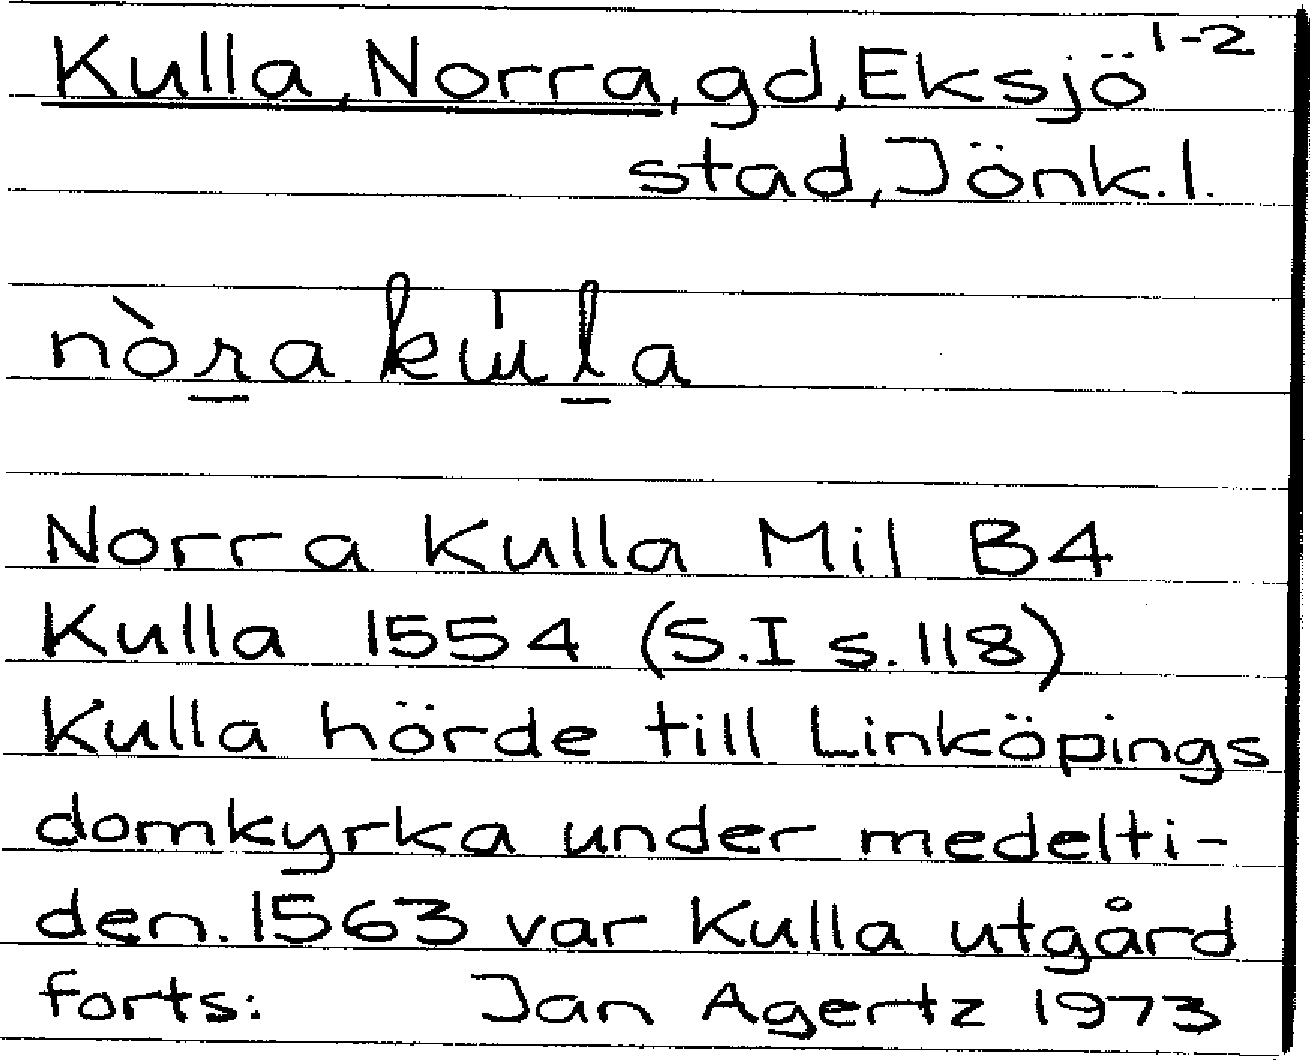 Kulla, Norra, gd, Eksjö 1-2
stad, Jönk.l.
nòra kùla
Norra Kulla Mil B4
Kulla 1554 (S.I s.118)
Kulla hörde till Linköpings
domkyrka under medelti-
den. 1563 var Kulla utgård
forts: Jan Agertz 1973